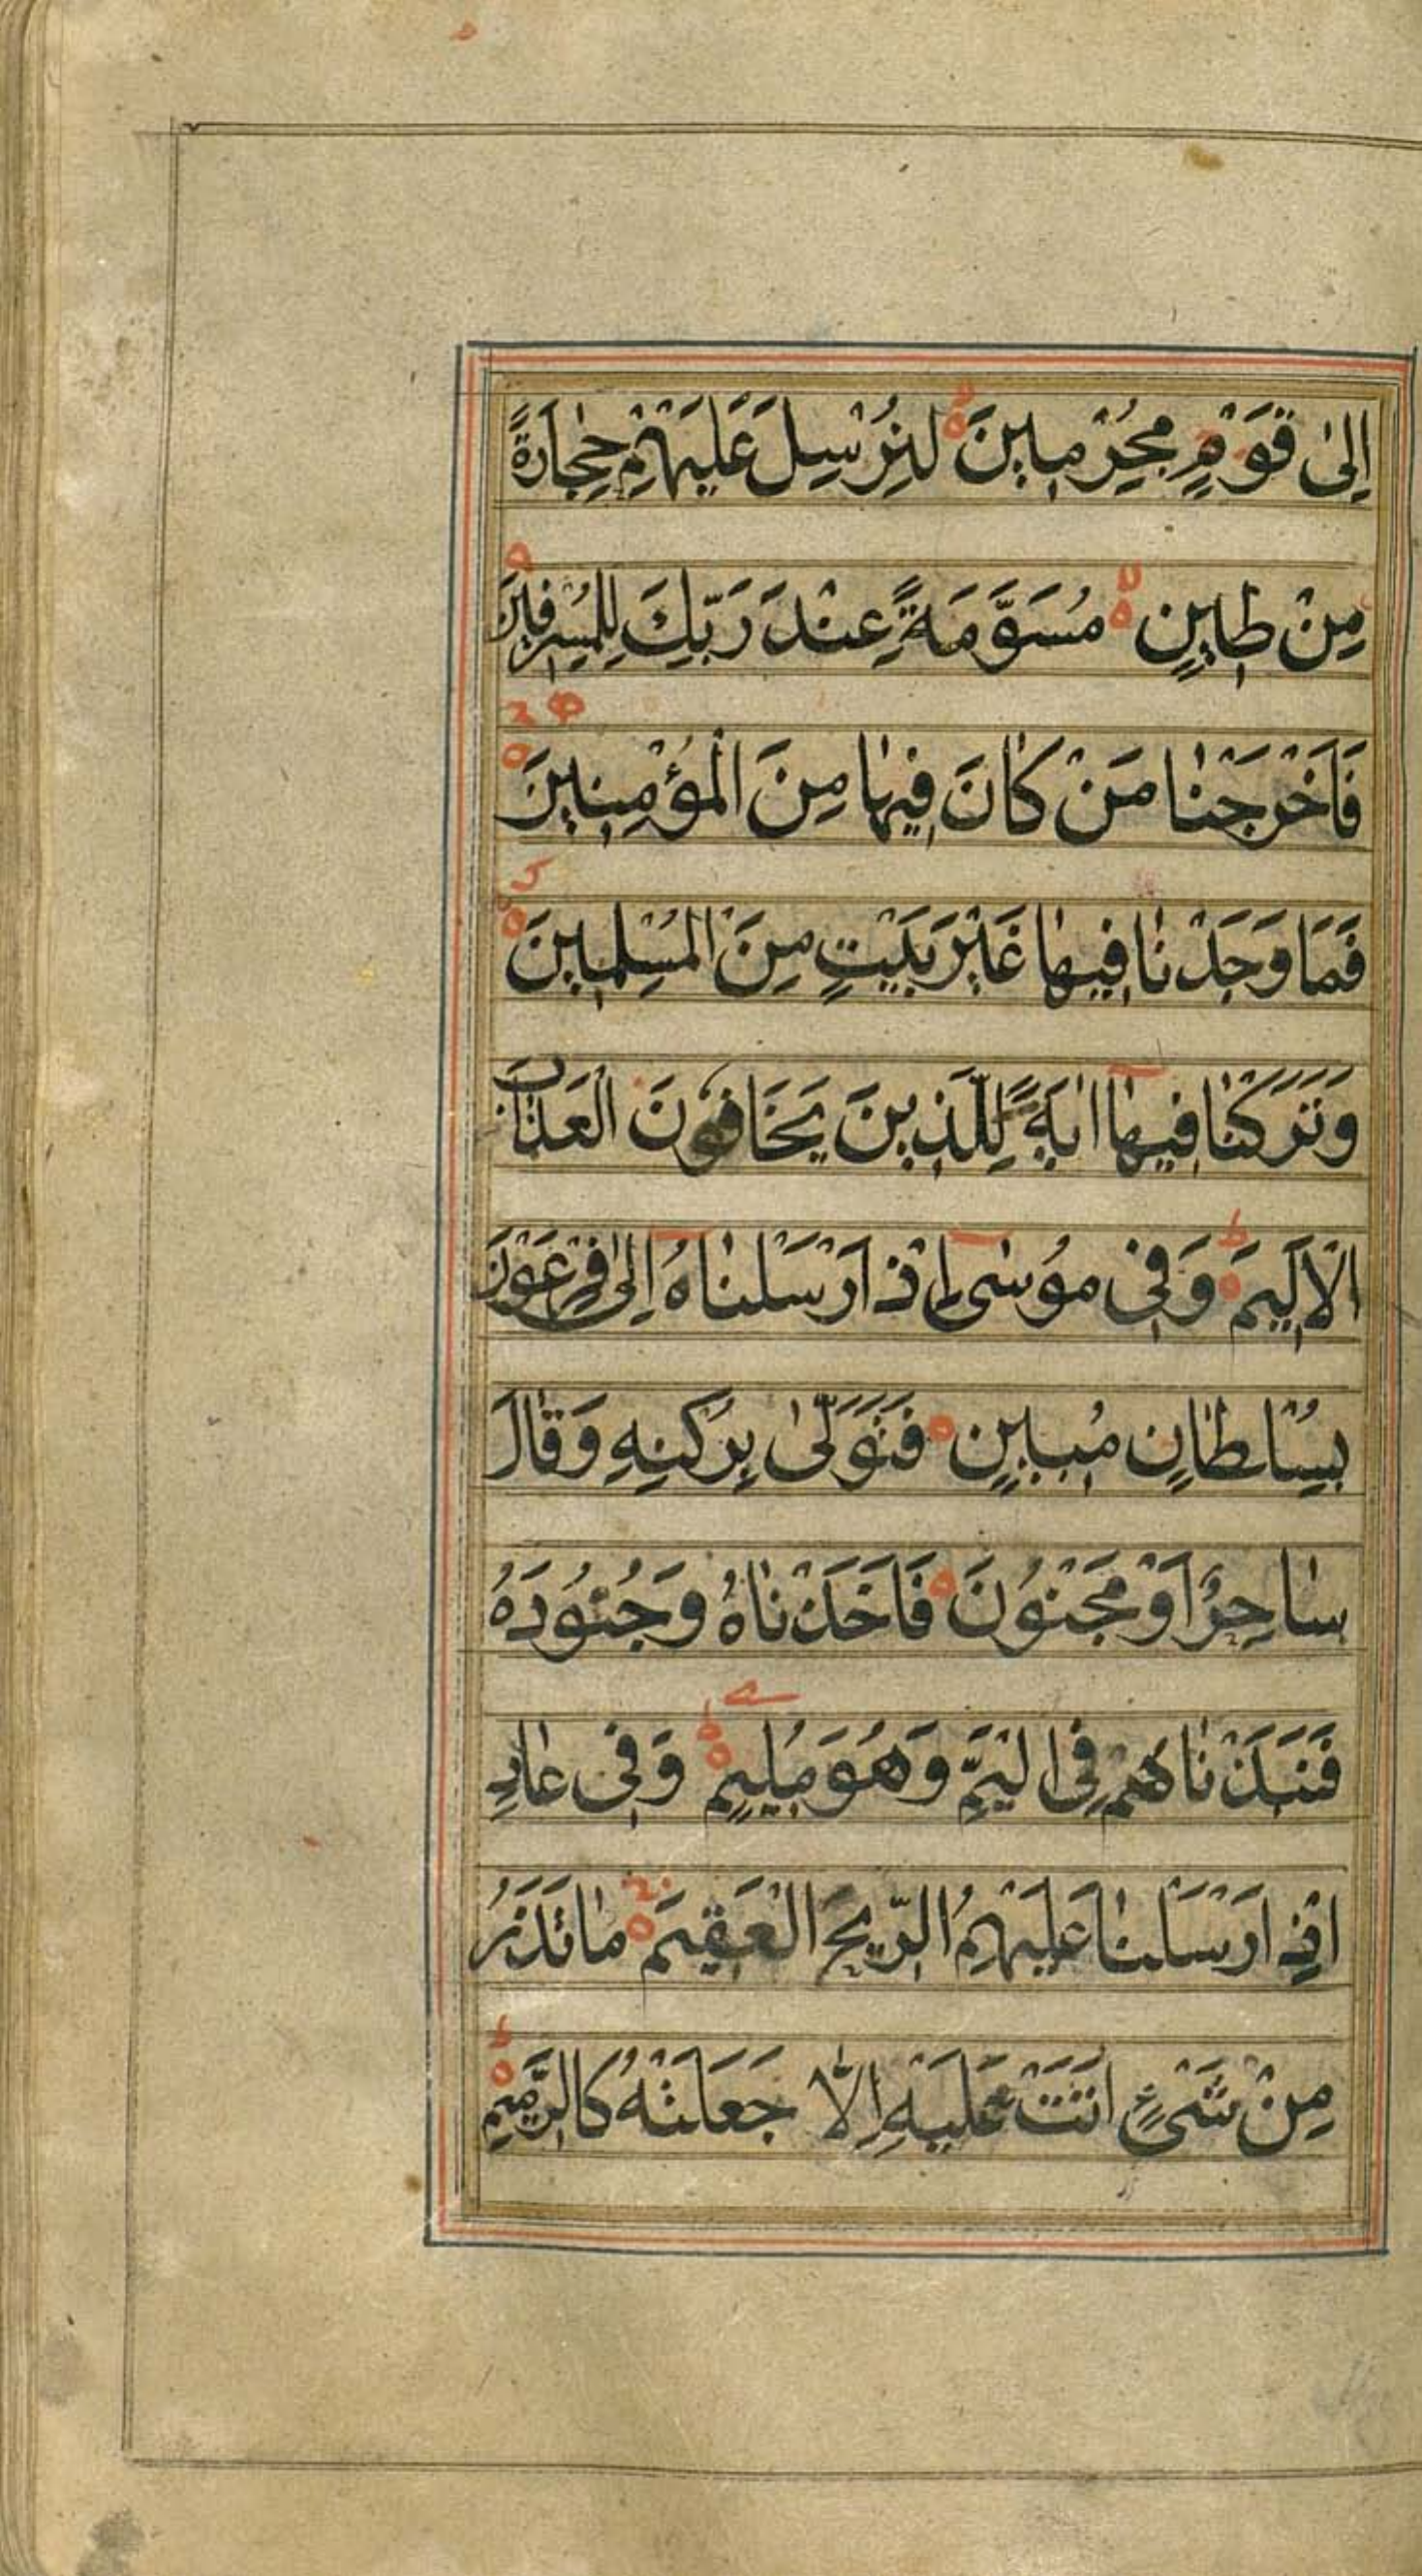 اِلىٰ قَوْمٍ مُجْرِمينَ لِنُرْسِلَ عَلَيْهِمْ حِجٰارَةً
مِنْ طينٍ مُسَوَّمَةً عِنْدَ رَبِّكَ لِلْمُسْرِفينَ
فَاَخْرَجْنٰا مَنْ كٰانَ فيهٰا مِنَ الْمُؤْمِنينَ
فَمٰا وَجَدْنٰا فيهٰا غَيْرَ بَيْتٍ مِنَ الْمُسْلِمينَ
وَتَرَكْنٰا فيهٰا اٰيَةً لِلَّذينَ يَخَافُونَ الْعَذٰابَ
الْاَليمَ وَفى مُوسٰى اِذْ اَرْسَلْنٰاهُ اِلىٰ فِرْعَوْنَ
بِسُلْطٰانٍ مُبينٍ فَتَوَلّىٰ بِرُكْنِهِ وَقٰالَ
سٰاحِرٌ اَوْ مَجْنُونَ فَاَخَذْنٰاهُ وَجُنُودَهُ
فَنَبَذْنٰاهُمْ فِى الْيَمِّ وَهُوَ مُليمٌ وَفى عٰادٍ
اِذْ اَرْسَلْنٰا عَلَيْهِمُ الرّيحَ الْعَقيمَ مٰا تَذَرُ
مِنْ شَىْءٍ اَتَتْ عَلَيْهِ اِلّٰا جَعَلَتْهُ كَالرَّميمِ